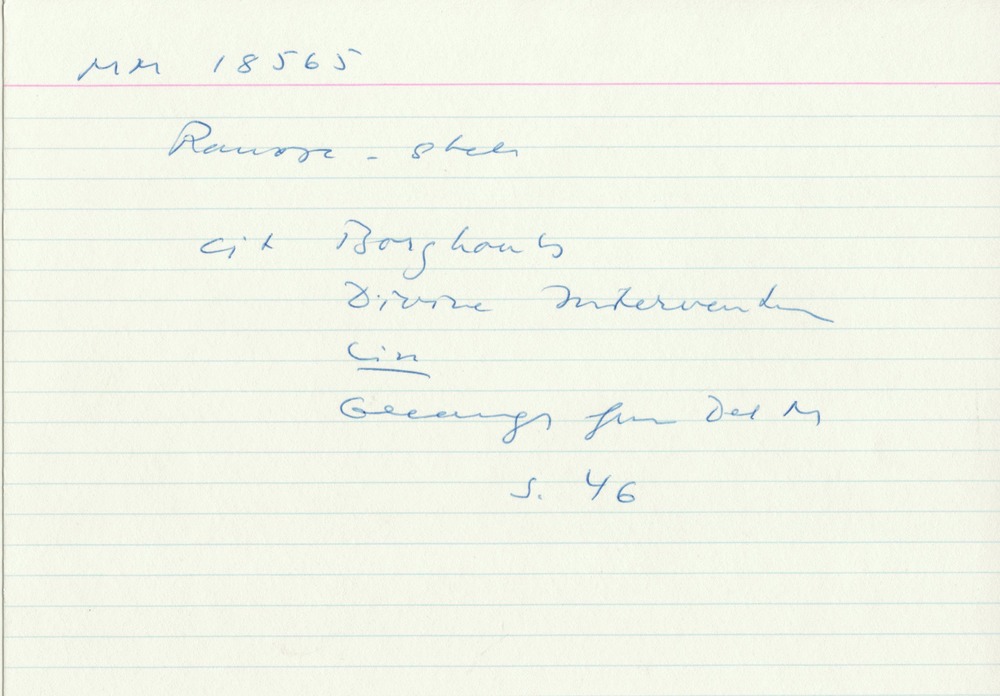 MM 18565
Ramose - stela
cit Borghouts
Divine Intervention
(in
Gleanings from Deir M
S. 46